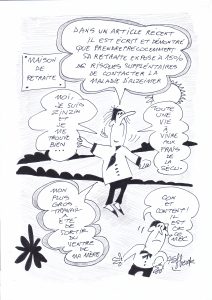 DANS UN ARTICLE RECENT
IL EST ECRIT ET DEMONTRE
QUE PRENDRE PRECOCEMMENT
SA RETRAITE EXPOSE A 150%
DE RISQUES SUPPLEMENTAIRES
DE CONTACTER LA
MALADIE D'ALZEIMER
MAISON
DE
RETRAITE
MOI,
JE SUIS
ZINZIN
ET JE
ME
TROUVE
BIEN
TOUTE
UNE
VIE
A
VIVRE
AUX
FRAIS
DE LA
SECU.
MON
PLUS
GROS
TRAVAIL
A
ETE
DE
SORTIR
DU
VENTRE
DE MA MERE
CON
ET
CONTENT!
IL
EST
OK
MEC